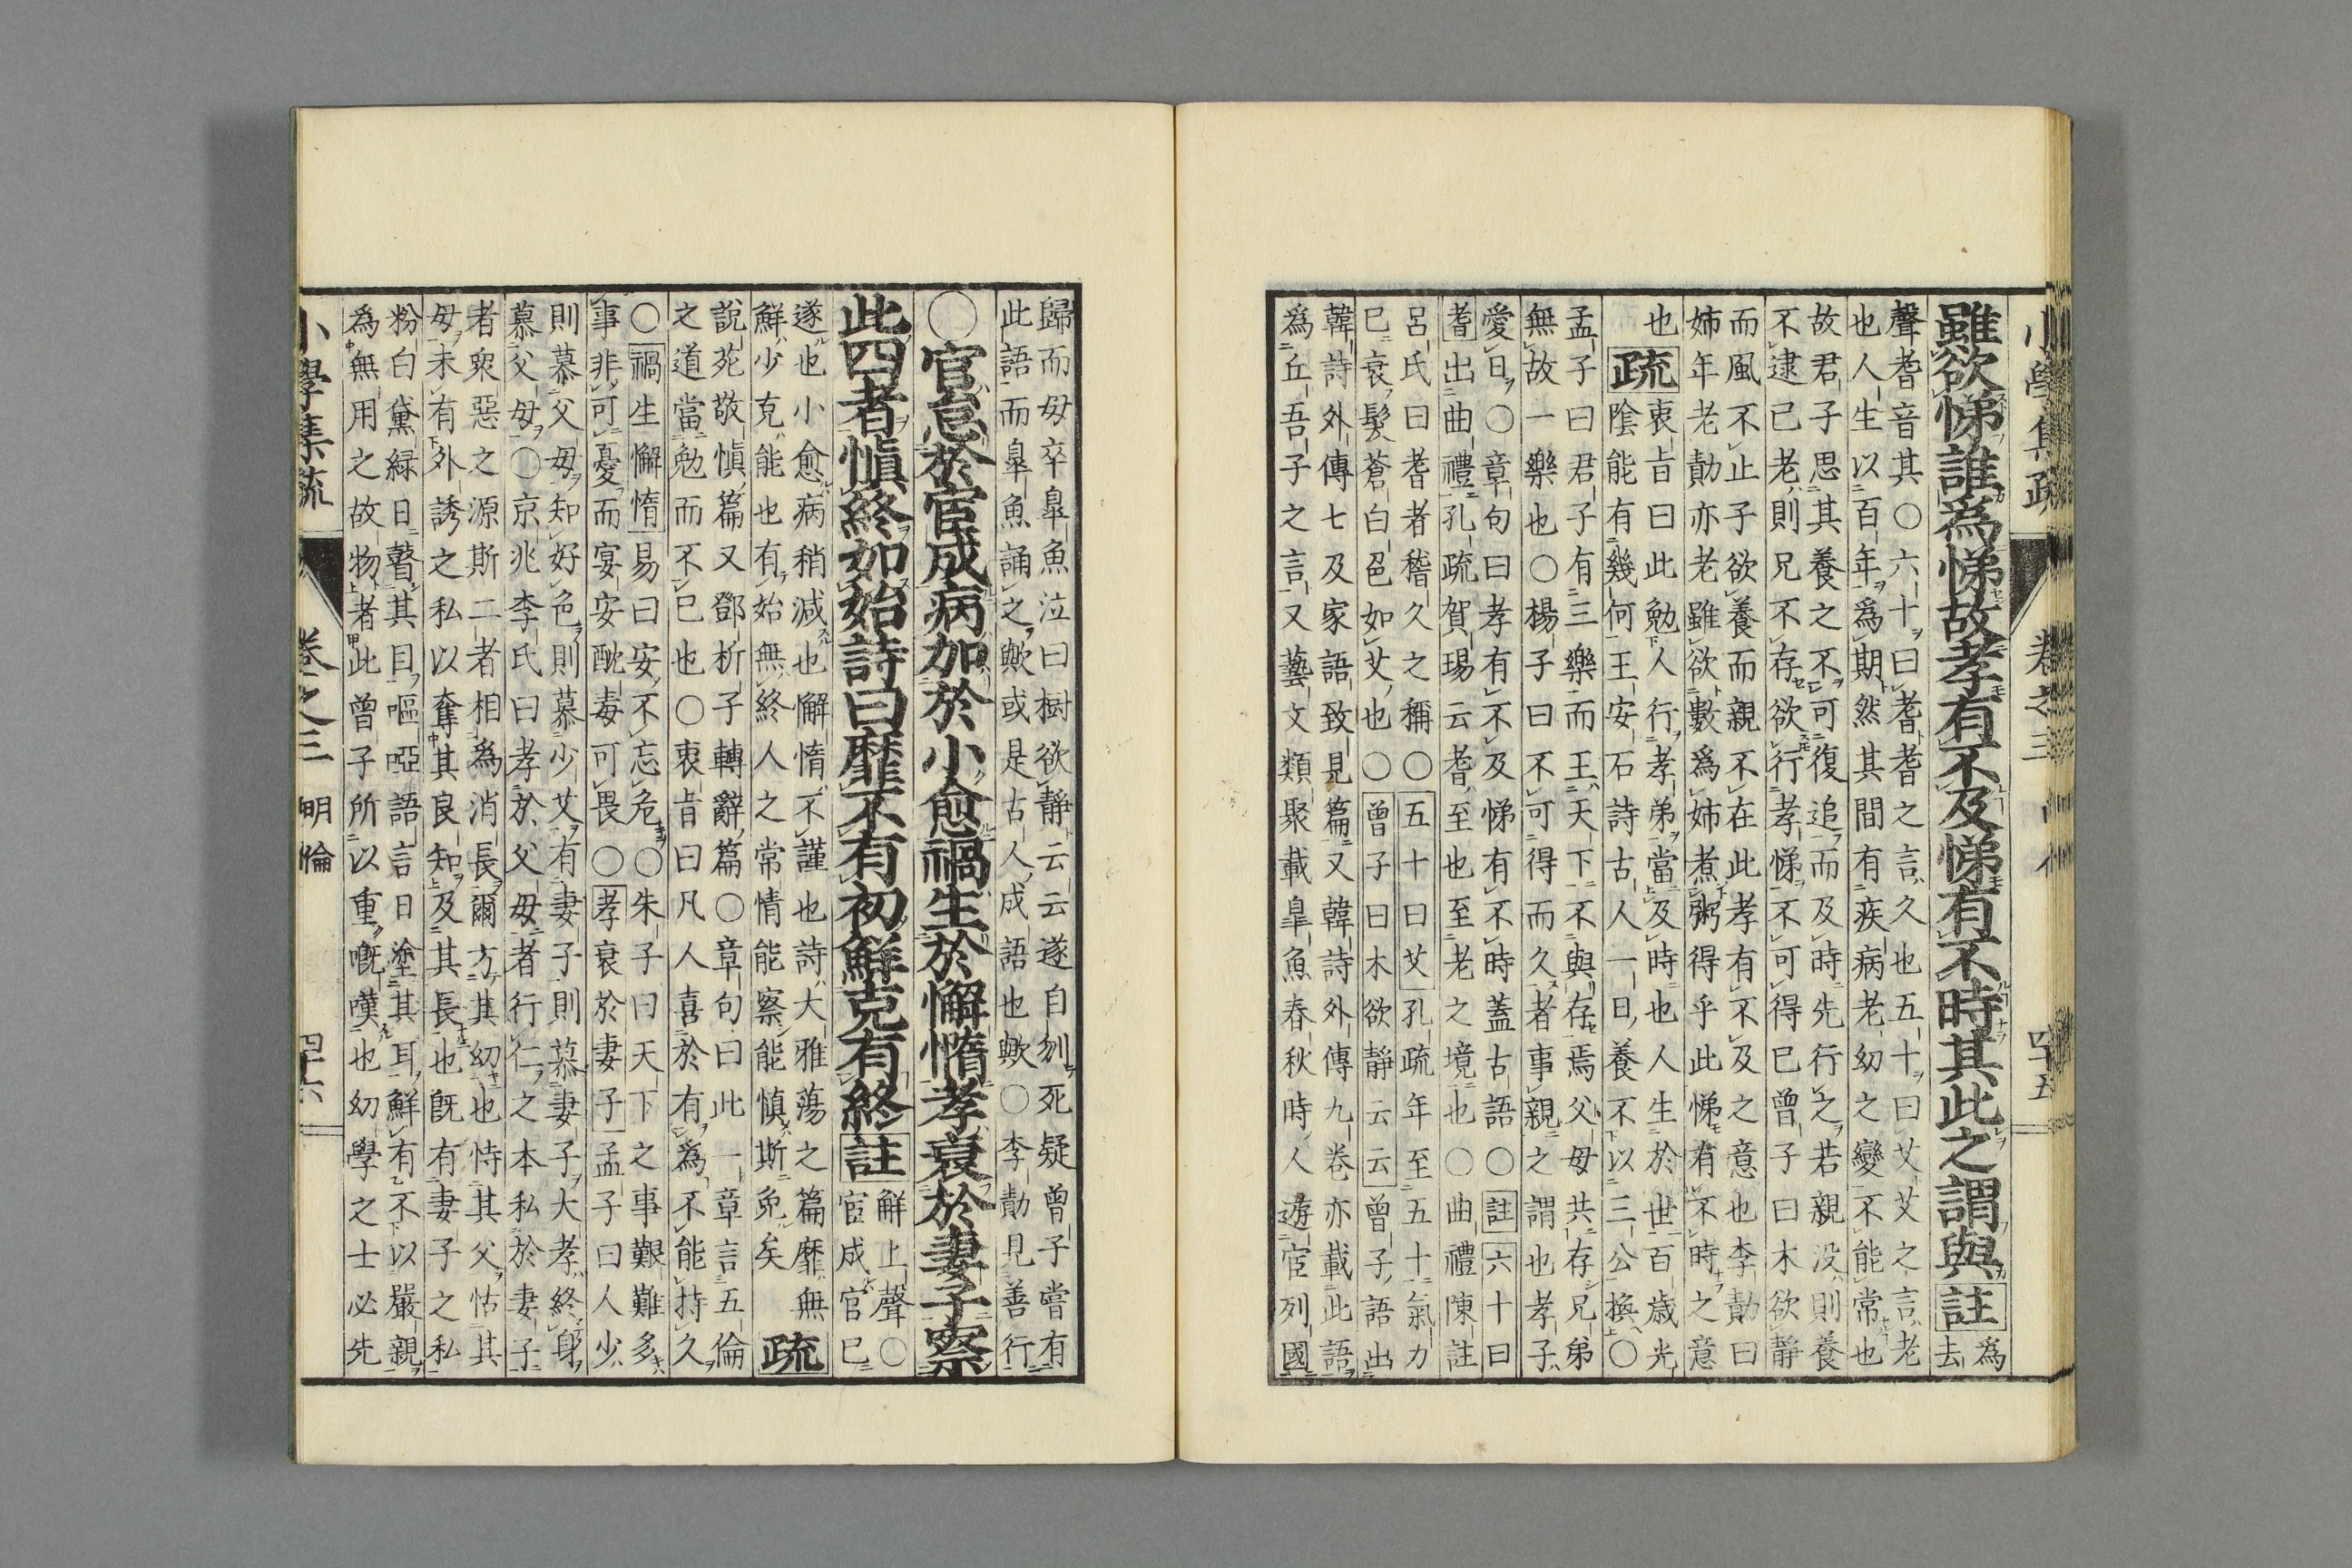 小學集疏 卷之三 四十五
雖欲悌誰為悌故孝有不及悌有不時其此之謂與 註 為
去
聲耆音其○六十曰耆耆之言久也五十曰艾艾之言老
也人生以百年爲期然其間有疾病老幼之變不能常也
故君子思其養之不可復追而及時先行之若親没則養
不逮已老則兄不存欲行孝悌不可得已曾子曰木欲靜
而風不止子欲養而親不在此孝有不及之意也李勣曰
姉年老勣亦老雖欲數爲姉煮粥得乎此悌有不時之意
也 疏 衷旨曰此勉人行孝弟當及時也人生於世百歳光
陰能有幾何王安石詩古人一日養不以三公換○
孟子曰君子有三樂而王天下不與存焉父母共存兄弟
無故一樂也○楊子曰不可得而久者事親之謂也孝子
愛日○章句曰孝有不及悌有不時蓋古語○註六十曰
耆出曲禮孔疏賀瑒云耆至也至老之境也○曲禮陳註
呂氏曰耆者稽久之稱○五十曰艾孔疏年至五十氣力
已衰髮蒼白色如艾也○曾子曰木欲靜云云曾子語出
韓詩外傳七及家語致見篇又韓詩外傳九卷亦載此語
爲丘吾子之言又藝文類聚載皐魚春秋時人遊宦列國
歸而母卒皐魚泣曰樹欲靜云云遂自刎死疑曾子嘗有
此語而皐魚誦之歟或是古人成語也歟○李勣見善行
○官怠於宦成病加於小愈禍生於懈惰孝衰於妻子察
此四者愼終如始詩曰靡不有初鮮克有終 註 鮮上聲○
宦成官已
遂也小愈病稍減也懈惰不謹也詩大雅蕩之篇靡無
鮮少克能也有始無終人之常情能察能愼斯免矣 疏
說苑敬愼篇又鄧析子轉辭篇○章句曰此一章言五倫
之道當勉而不已也○衷旨曰凡人喜於有為不能持久
○禍生懈惰易曰安不忘危○朱子曰天下之事艱難多
事非可憂而宴安酖毒可畏○孝衰於妻子孟子曰人少
則慕父母知好色則慕少艾有妻子則慕妻子大孝終身
慕父母○京兆李氏曰孝於父母者行仁之本私於妻子
者衆惡之源斯二者相為消長爾方其幼也恃其父怙其
母未有外誘之私以奪其良知及其長也既有妻子之私
粉白黛緑日瞽其目嘔啞語言日塗其耳鮮有不以嚴親
為無用之故物者此曾子所以重嘅嘆也幼學之士必先
小學集疏 卷之三 明倫 四十六